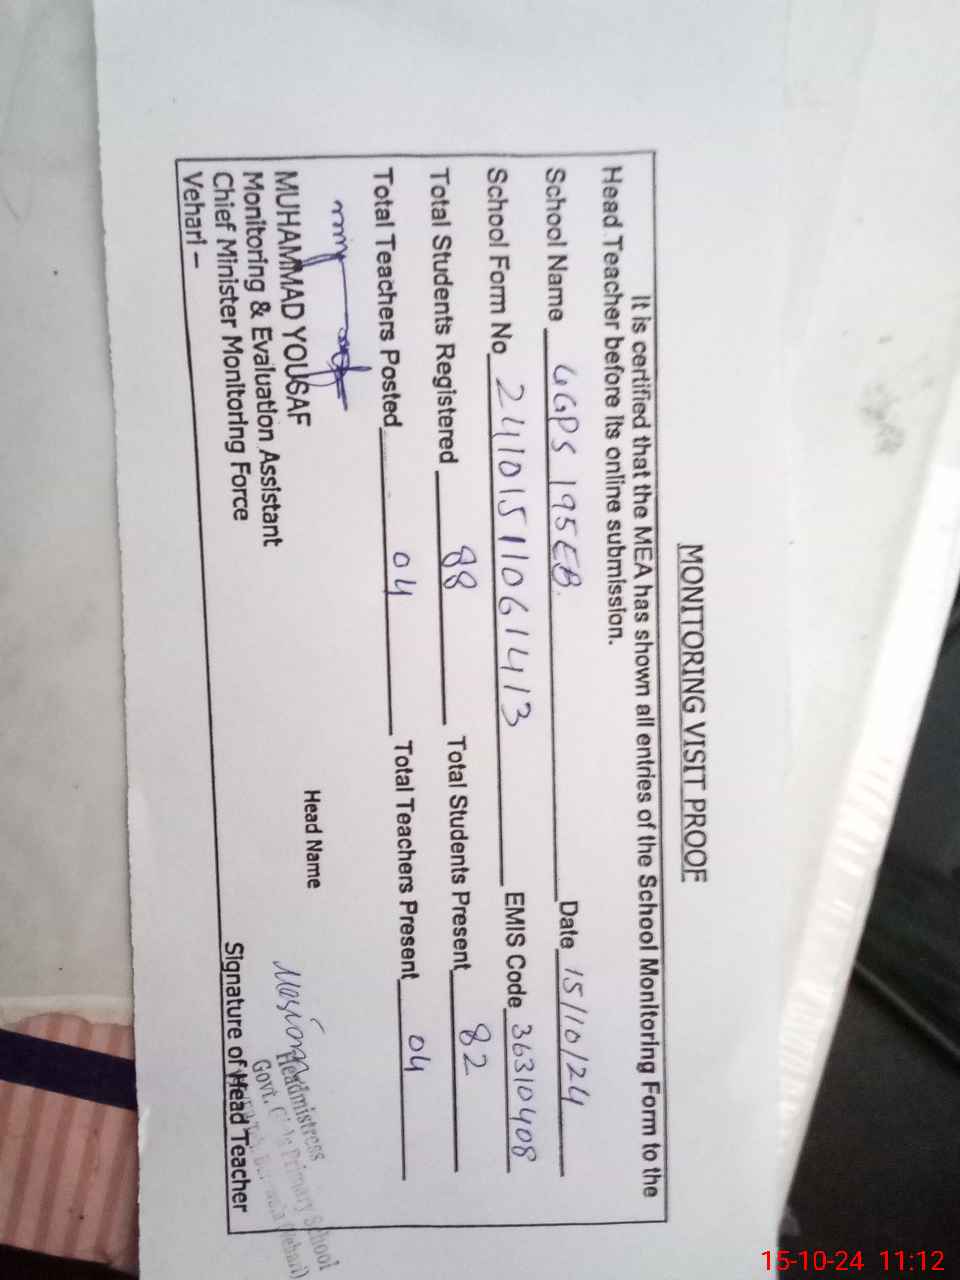 MONITORING VISIT PROOF
It is certified that the MEA has shown all entries of the School Monitoring Form to the
Head Teacher before its online submission.
School Name GGPS 195EB. Date 15/10/24
School Form No 24101511061413 EMIS Code 36310408
Total Students Registered 88 Total Students Present 82
Total Teachers Posted 04 Total Teachers Present 04
MUHAMMAD YOUSAF
Monitoring & Evaluation Assistant
Chief Minister Monitoring Force
Vehari –
Head Name
Headmistress
Govt. Primary School
(Vehari)
Signature of Head Teacher
15-10-24 11:12